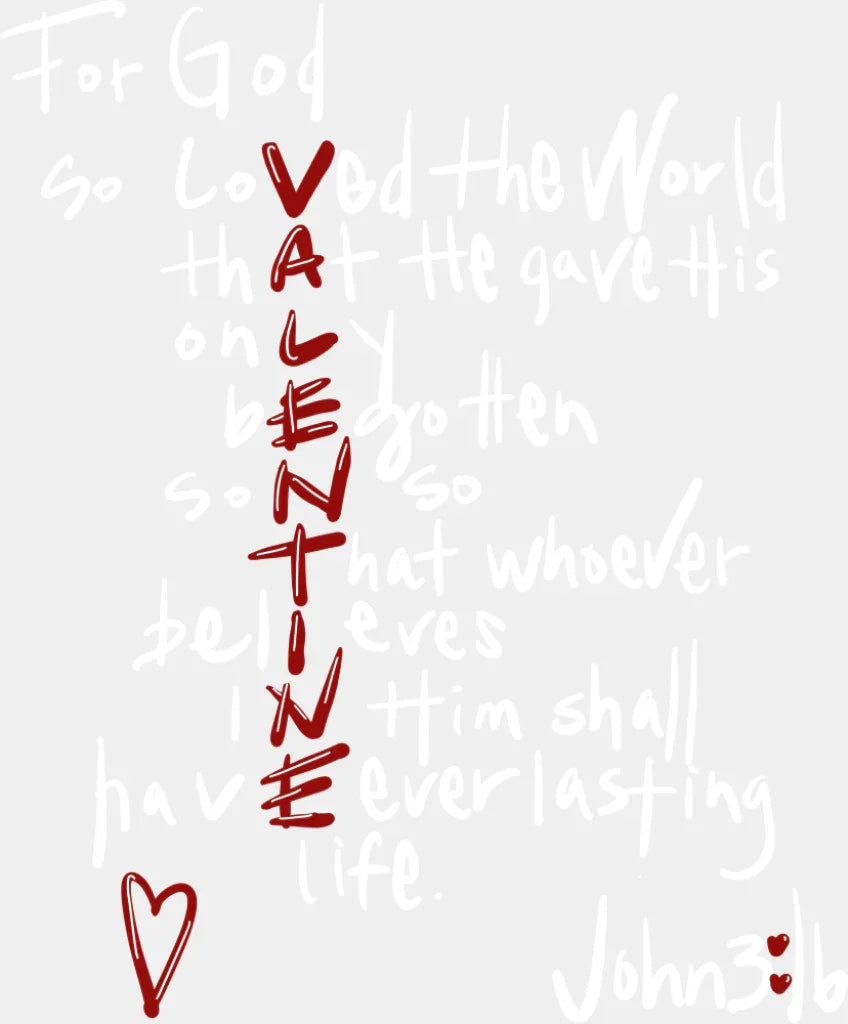 For God
so LoVed the World
thAt He gave His
onLy
bEgotten
soN so
That whoever
belIeves
iN Him shall
havE everlasting
life.
John 3:16